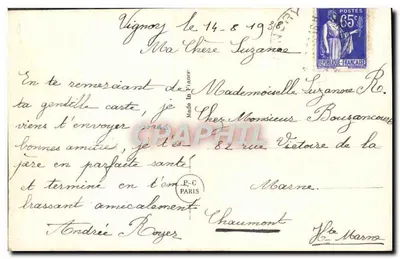 Vignory le 14-8-1938
Ma Chère Suzanne
En te remerciant de
ta gentille carte, je
viens t'envoyer mes
bonnes amitiés, je t'es
père en parfaite santé
et termine en t'em
brassant amicalement
Andrée Royer
Made in France
P-C
PARIS
POSTES
65c
RÉPUBLIQUE FRANÇAISE
Mademoiselle Suzanne R.
Chez Monsieur Bouzancourt
82 rue Victoire de la
Marne.
Chaumont
Hte Marne
CPHILIA